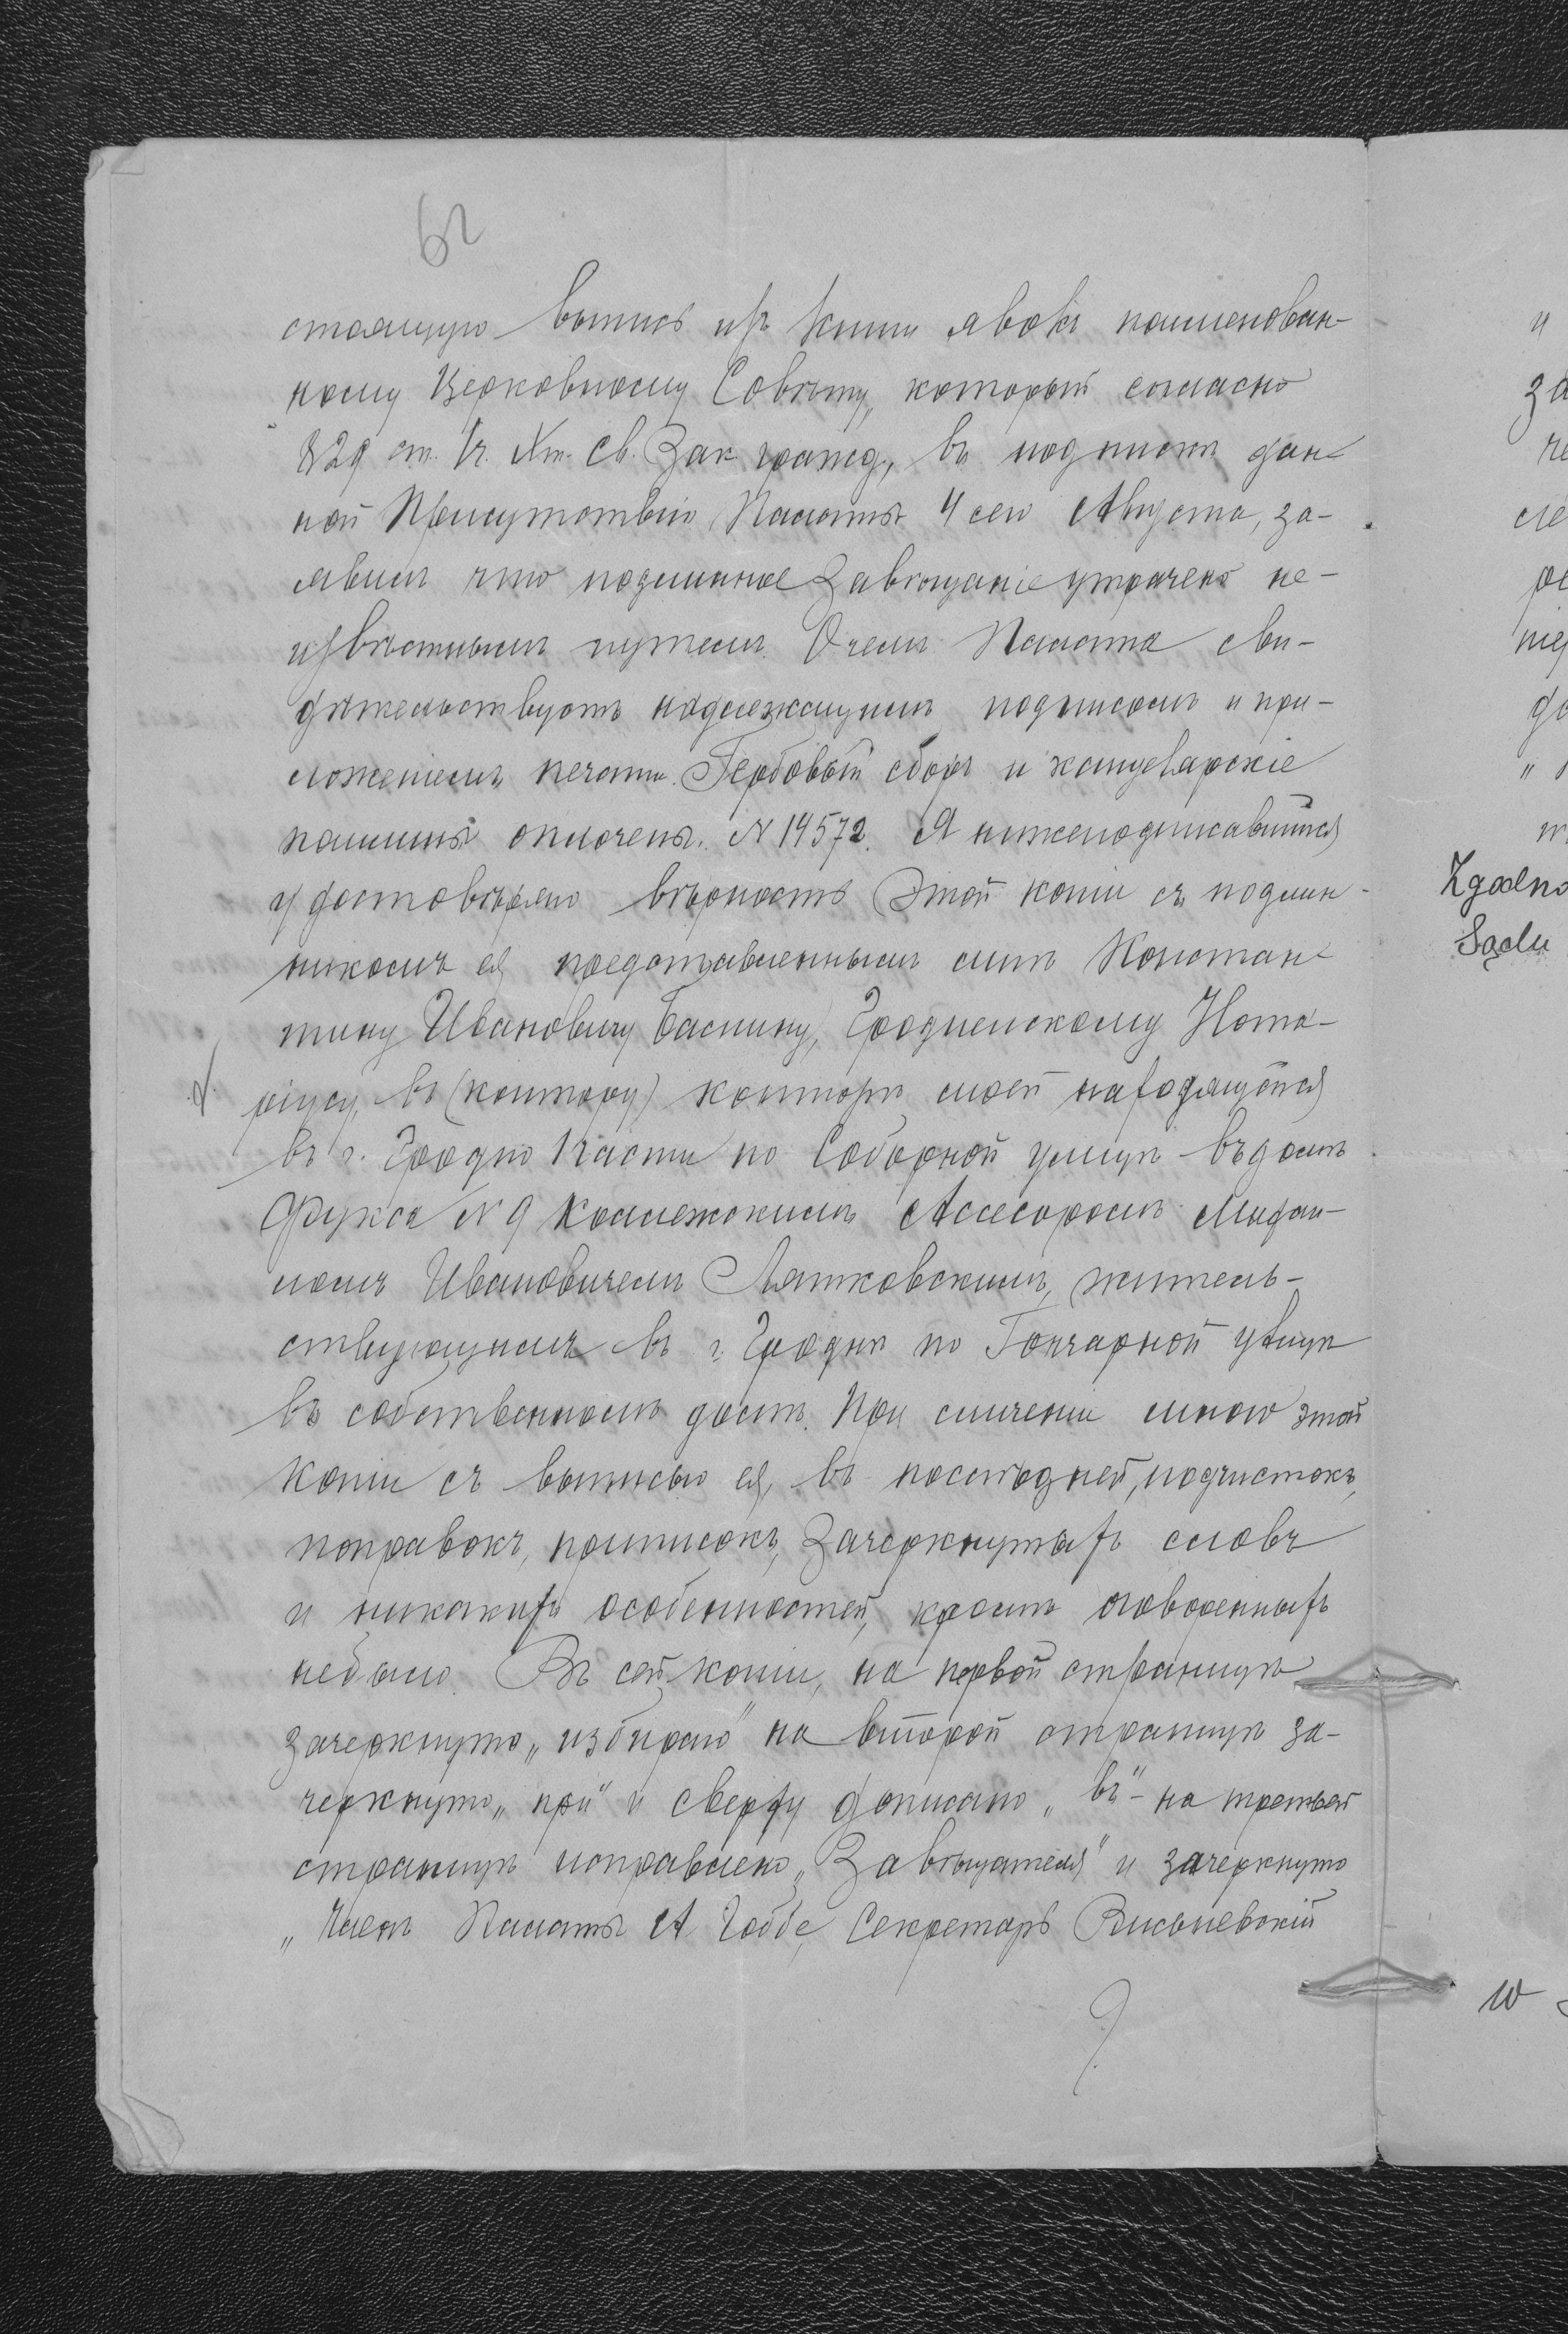 62
стоящую выпись изъ книги явокъ поименован-
ному Церковному Совѣту, который согласно
829 ст. 1ч. Хт. Св. Зак гражд, въ подпискѣ дан-
ной Присутствію Палаты 4 сего Августа, за-
явилъ что подлинное Завѣщаніе утрачено не-
извѣстнымъ путемъ. О чемъ Палата сви-
дѣтельствуетъ надлежащимъ подписомъ и при-
ложеніемъ печати. Гербовый сборъ и канцелярскіе
пошлины оплочены. N 14572. Я нижеподписавшійся
удостовѣряю вѣрность этой копіи съ подлин-
никомъ ея представленнымъ мнѣ Констан-
тину Ивановичу Баснину, Гродненскому Нота-
ріусу, въ (контору) конторѣ моей находящейся
въ г. Гродно 1части по Соборной улицѣ въ домѣ
Фукса N 9 Коллежскимъ Ассесоромъ Михаи-
ломъ Ивановичемъ Лятковскимъ, житель-
ствующимъ въ г. Гродни по Гончарной улицѣ
въ собственномъ домѣ. При сличеніи мною этой
копіи съ выписью ея, въ послѣдней, подчистокъ,
поправокъ, приписокъ, зачеркнутыхъ словъ
и никакихъ особенностей, кромѣ оговоренныхъ
небыло. Въ сей копіи, на первой страницѣ
зачеркнуто „избираю" на второй страницѣ за-
черкнуто „при" и сверху дописано „въ" - на третьей
страницѣ исправлено „Завѣщателя" и зачеркнуто
„Членъ Палаты А Гоббе, Секретарь Висьневскій
и
за
че
сле
ре
"
Zgodno
Sądu
w